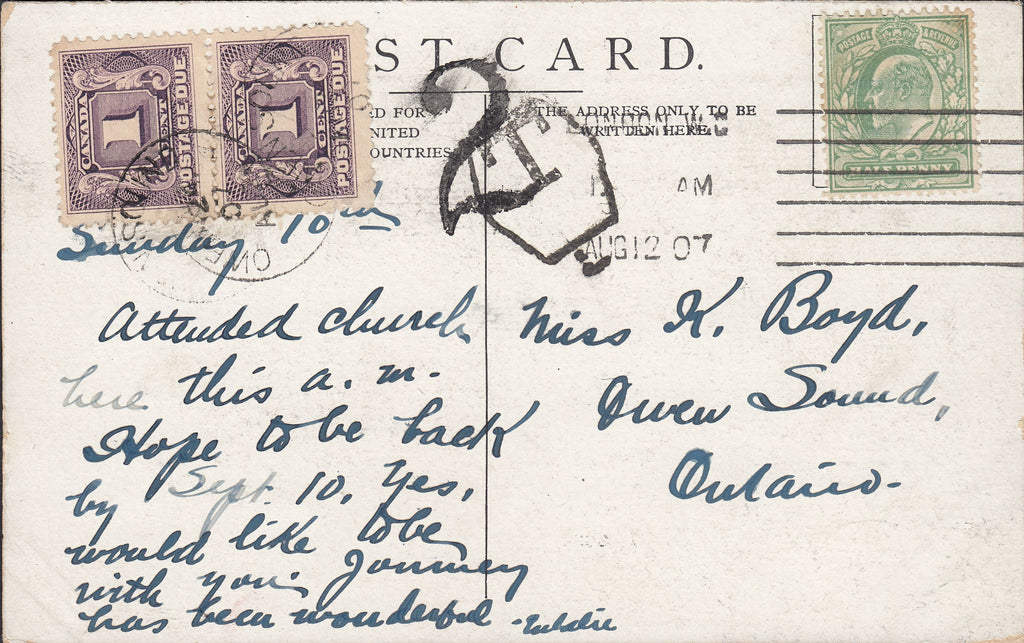 ST CARD.
ED FOR
NITED
OUNTRIES
THE ADDRESS ONLY TO BE
WRITTEN HERE.
CANADA
1
CENT
POSTAGE DUE
CANADA
1
CENT
POSTAGE DUE
2
T
LONDON
AM
AUG 12 07
POSTAGE & REVENUE
HALFPENNY
OWEN
Sunday
Attended church
here this a.m.
Hope to be back
by Sept. 10. Yes,
would like to be
with you. Journey
has been wonderful
Miss K. Boyd,
Owen Sound,
Ontario.